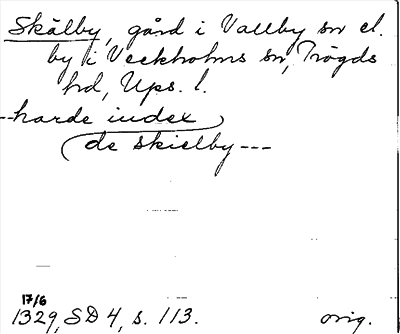 Skälby, gård i Vallby sn el.
by i Veckholms sn, Trögds
hd, Ups. l.
--harde index
(de skielby---
17/6
1329, SD 4, s. 113. orig.